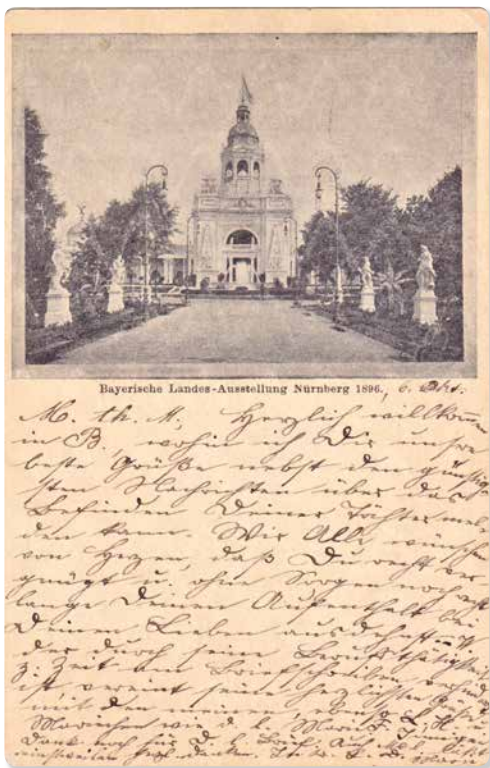 Bayerische Landes-Ausstellung Nürnberg 1896. 6. Okt.
M. th. M. Herzlich willkommen
in B., wohin ich Dir unsre
beste Grüße nebst den günstig-
sten Nachrichten über das
Befinden Deiner Töchter mel-
den kann. Wir Alle wünschen
von Herzen, daß Du recht ver-
gnügt u. ohne Sorgen noch recht
lange Deinen Aufenthalt bei
Deinen Lieben ausdehnst.
der durch seine Berufsthätigkeit
z. Zeit am Briefschreiben verhindert
ist, vereint seine herzlichsten Grüße
mit den meinen
Mariechen wie d. l.
Dank noch für D. l. Brief.